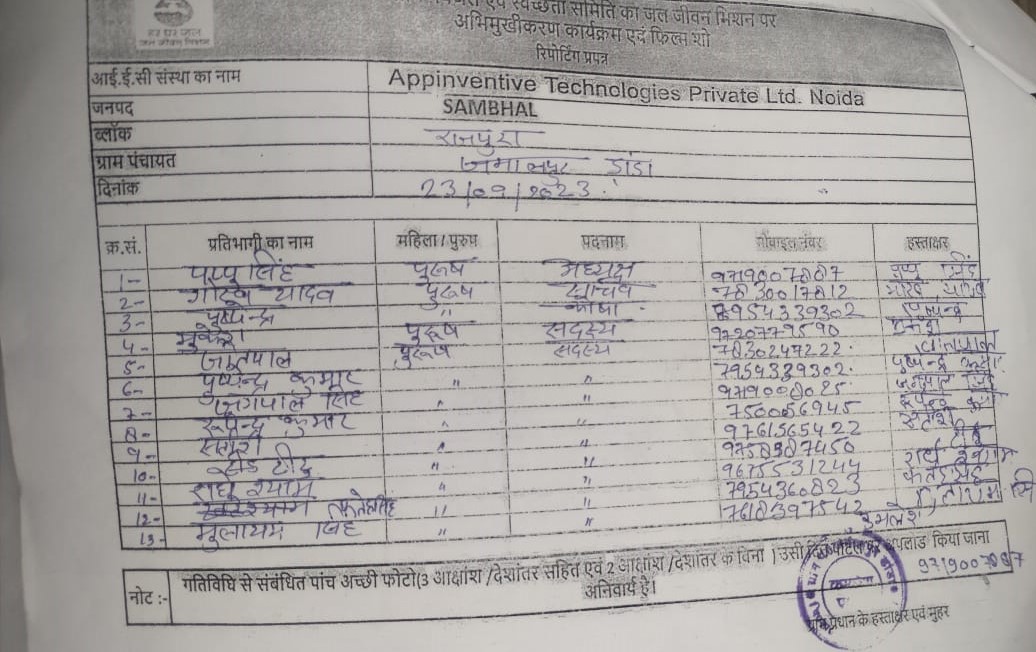 एवं स्वच्छता समिति का जल जीवन मिशन पर
अभिमुखीकरण कार्यक्रम एवं फिल्म शो
रिपोर्टिंग प्रपत्र
हर घर जल
जल जीवन मिशन
आई.ई.सी संस्था का नाम Appinventive Technologies Private Ltd. Noida
जनपद SAMBHAL
ब्लॉक रजपुरा
ग्राम पंचायत जमालपुर डांडा
दिनांक 23/09/2023
क्र.सं. प्रतिभागी का नाम महिला / पुरुष पदनाम मोबाइल नंबर हस्ताक्षर
1- पप्पू सिंह पुरूष अध्यक्ष 9719007087 पप्पू सिंह
2- गौरव यादव पुरूष सचिव 7830017812 गौरव यादव
3- पुष्पेन्द्र " कोषा 7954339302 पुष्पेन्द्र
4- मुकेश पुरूष सदस्य 9720779590
5- जगतपाल पुरूष सदस्य 7830247222
6- पुष्पेन्द्र कुमार " " 7954339302 पुष्पेन्द्र कुमार
7- जगपाल सिंह " " 9719000025 जगपाल सिंह
8- रूपेन्द्र कुमार " " 7500056945
9- " " 9761565422
10- टीटू " " 9758987450 टीटू
11- राधे श्याम " " 9675531244 राधे श्याम
12- फतेहसिंह " " 7954360823 फतेहसिंह
13- मुलायम सिंह " " 7618397542
नोट :- गतिविधि से संबंधित पांच अच्छी फोटो(3 अक्षांश /देशांतर सहित एवं 2 अक्षांश /देशांतर के बिना ) उसी दिन पोर्टल पर अपलोड किया जाना
अनिवार्य है।
9719007087
ग्राम प्रधान के हस्ताक्षर एवं मुहर